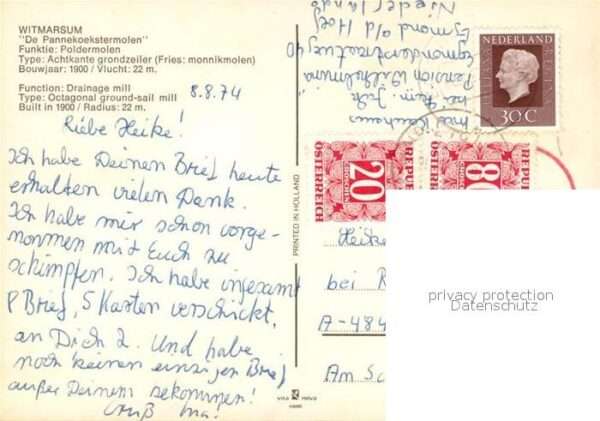 WITMARSUM
"De Pannekoekstermolen"
Funktie: Poldermolen
Type: Achtkante grondzeiler (Fries: monnikmolen)
Bouwjaar: 1900 / Vlucht: 22 m.
Function: Drainage mill
Type: Octagonal ground-sail mill
Built in 1900 / Radius: 22 m.
8.8.74
Liebe Heike!
Ich habe Deinen Brief heute
erhalten vielen Dank.
Ich habe mir schon vorge-
nommen mit Euch zu
schimpfen. Ich habe insgesamt
8 Brief, 5 Karten verschickt,
an Dich 2. Und habe
noch keinen einzigen Brief
außer Deinem bekommen!
Gruß
PRINTED IN HOLLAND
vita nova
Pension Wilhelmina
Egmonderstraatweg 40
Egmond a/d Hoef
Niederlande
NEDERLAND
30 C
REPUBLIK
ÖSTERREICH
20
GROSCHEN
REPU
ÖSTERREICH
80
Heike
bei R
A-484
Am Sc
privacy protection
Datenschutz